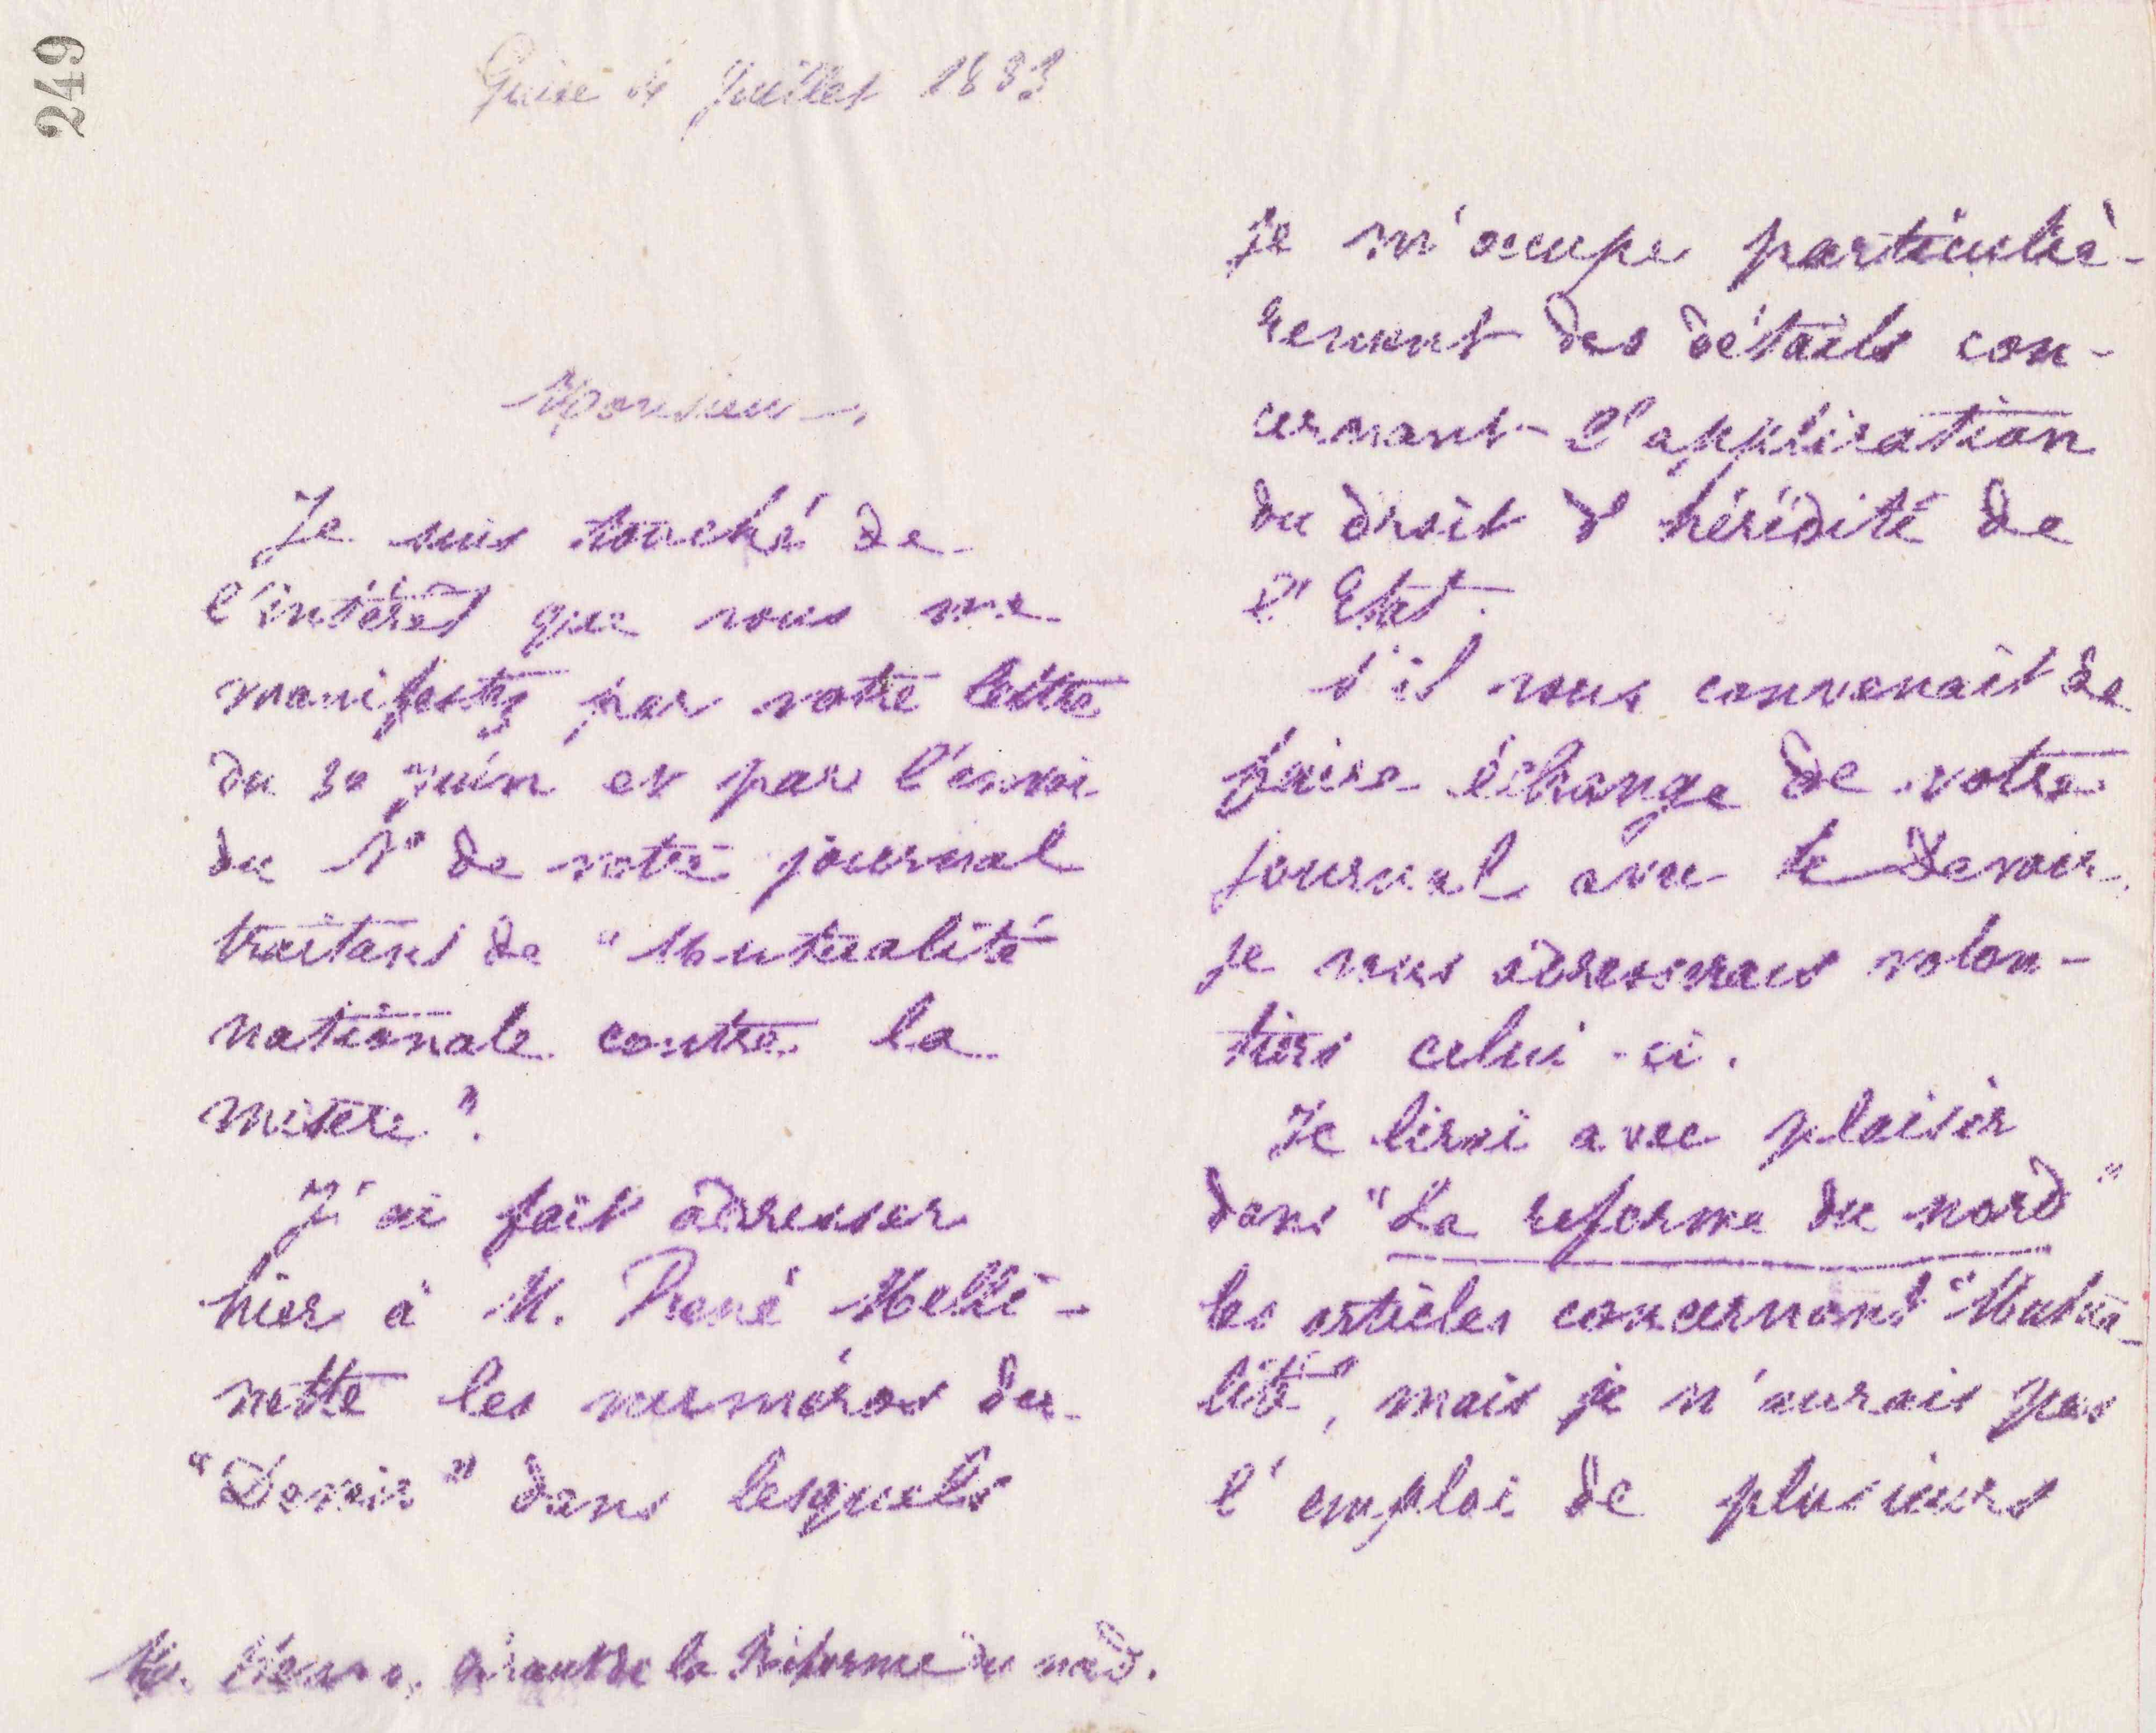 249
Guise 4 Juillet 1883
Monsieur,
Je suis touché de
l'intérêt que vous me
manifestez par votre lettre
du 30 juin et par l'envoi
du Nº de votre journal
traitant de "Mutualité
nationale contre la
misère".
J'ai fait adresser
hier à M. René Melli-
nette les numéros du
"Devoir" dans lesquels
M. gérant de la Réforme du nord.
je m'occupe particuliè-
rement des détails con-
cernant l'application
du droit d'hérédité de
l'Etat.
s'il vous convenait de
faire échange de votre
journal avec le Devoir,
je vous adresserais volon-
tiers celui-ci.
Je lirai avec plaisir
dans "La reforme du nord"
les articles concernant "Mutua-
lité", mais je n'aurais pas
l'emploi de plusieurs